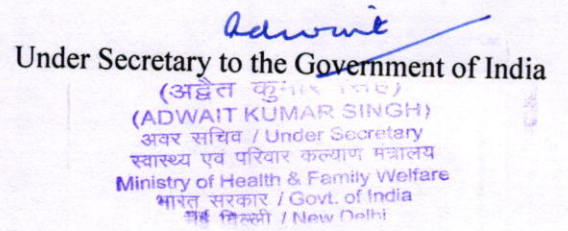 Adwait
Under Secretary to the Government of India
(अद्वैत कुमार सिंह)
(ADWAIT KUMAR SINGH)
अवर सचिव / Under Secretary
स्वास्थ्य एवं परिवार कल्याण मंत्रालय
Ministry of Health & Family Welfare
भारत सरकार / Govt. of India
नई दिल्ली / New Delhi